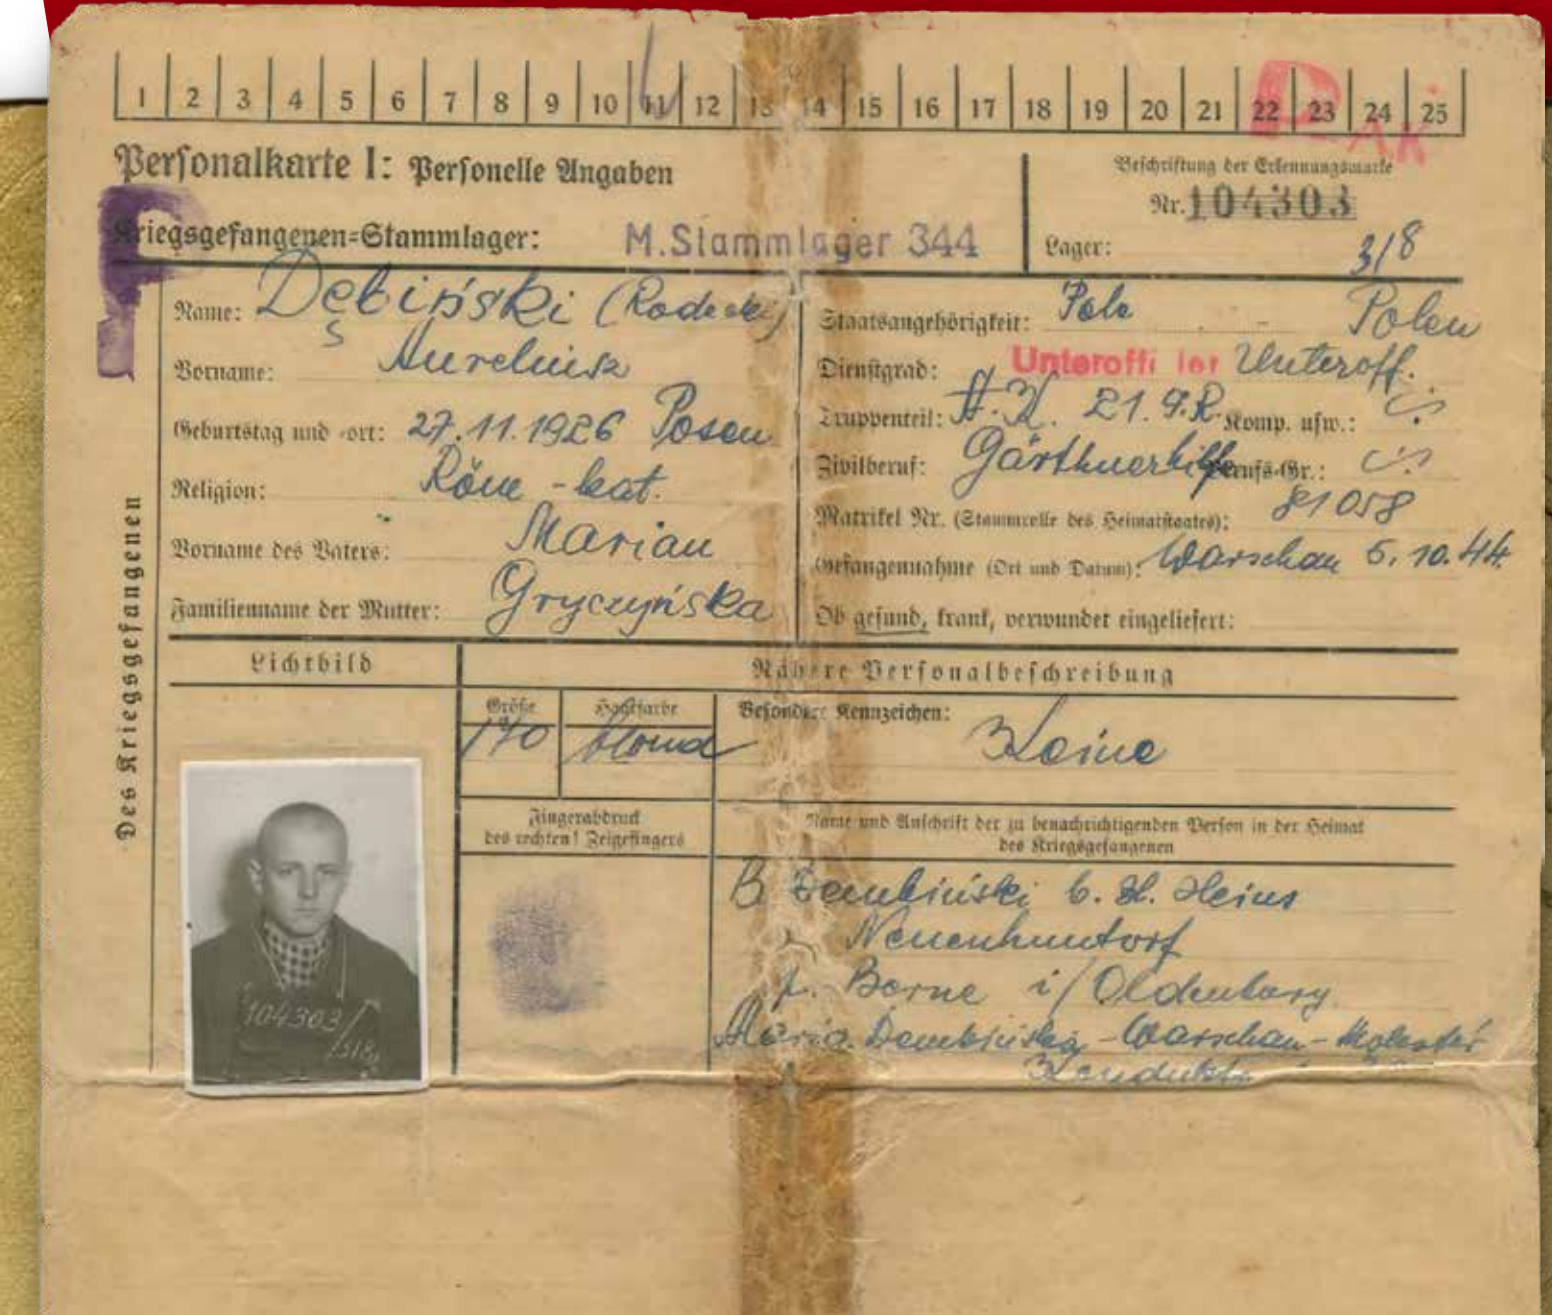 1 2 3 4 5 6 7 8 9 10 11 12 13 14 15 16 17 18 19 20 21 22 23 24 25
AK
Personalkarte I: Personelle Angaben
Beschriftung der Erkennungsmarke
Nr. 104303
Kriegsgefangenen=Stammlager: M.Stammlager 344
Lager: 318
Des Kriegsgefangenen
Name: Dębiński
Vorname:
Geburtstag und -ort: 27.11.1926 Posen
Religion: Röm-kat.
Vorname des Vaters: Marian
Familienname der Mutter: Gryczyńska
Staatsangehörigkeit: Pole Polen
Dienstgrad: Unteroffizier Unteroff.
Truppenteil: A.K. 21. Komp. usw.:
Zivilberuf: Berufs-Gr.:
Matrikel Nr. (Stammrolle des Heimatstaates): 81058
Gefangennahme (Ort und Datum): Warschau 5.10.44.
Ob gesund, krank, verwundet eingeliefert:
Lichtbild
Nähere Personalbeschreibung
Größe
170
Haarfarbe
blond
Besondere Kennzeichen: Keine
Fingerabdruck
des rechten! Zeigefingers
Name und Anschrift der zu benachrichtigenden Person in der Heimat
des Kriegsgefangenen
B b. H.
Neuenhuntorf
Berne i/Oldenburg
Maria Dembińska - Warschau -
104303/
318